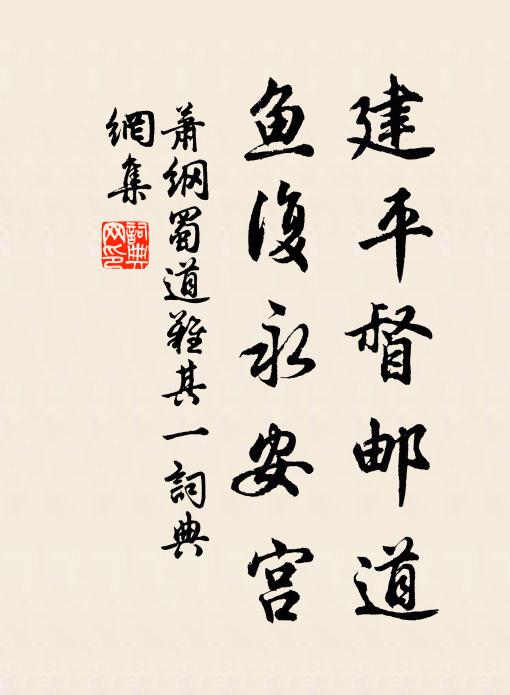 建平督邮道
鱼復永安宫
萧纲蜀道難其一詞典
網集
詞典
网印